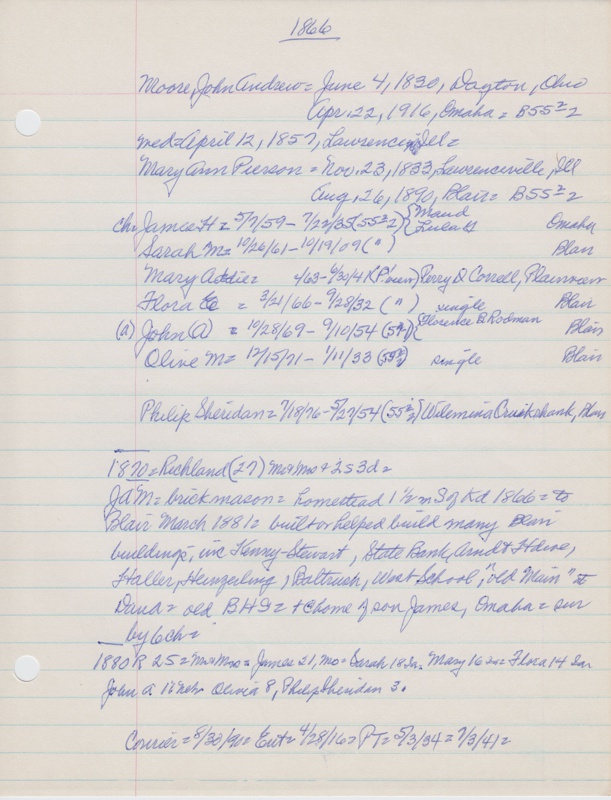 1866
Moore, John Andrew = June 4, 1830, Dayton, Ohio
Apr. 22, 1916, Omaha = B55
med = April 12, 1857, Lawrence Ill =
Mary Ann Pierson = Nov. 23, 1833, Lawrenceville, Ill
Aug. 26, 1890, Blair = B55
Ch. James H = 5/7/59 - 7/23/35 { Maud Omaha
Sarah M = 10/26/61 - 10/19/09 ( " ) Blair
Mary Addie = 4/63 - Perry D Correll, Plainview
Flora = 3/21/66 - 9/28/32 ( " ) single Blair
(a) John A = 10/28/69 - 9/10/54 { Florence B Rodman Blair
Olive M = 12/15/71 - 1/11/33 single Blair
Philip Sheridan = 7/18/76 - 5/27/54 Wilemina Cruickshank, Blair
1870 = Richland (27) Mr & Mrs + 2s 3d =
JAM = brick mason = homestead 1 1/2 m S of Kd 1866 = to
Blair March 1881 = built or helped build many Blair
buildings, inc Kenny-Stewart, State Bank, Arndt Hdwe,
Haller, Heinzerling, Paltrush, West School, "old Main" at
Dana = old BHS = + home of son James, Omaha = sur
by 6 ch =
1880 R 25 = Mr Mrs = James 21, Mo = Sarah 18 = Mary 16 = Flora 14
John A 11 Olivia 8, Philip Sheridan 3.
Courier = 8/30/90 = Ent = 4/28/16 = PT = 5/3/34 = 7/3/41 =